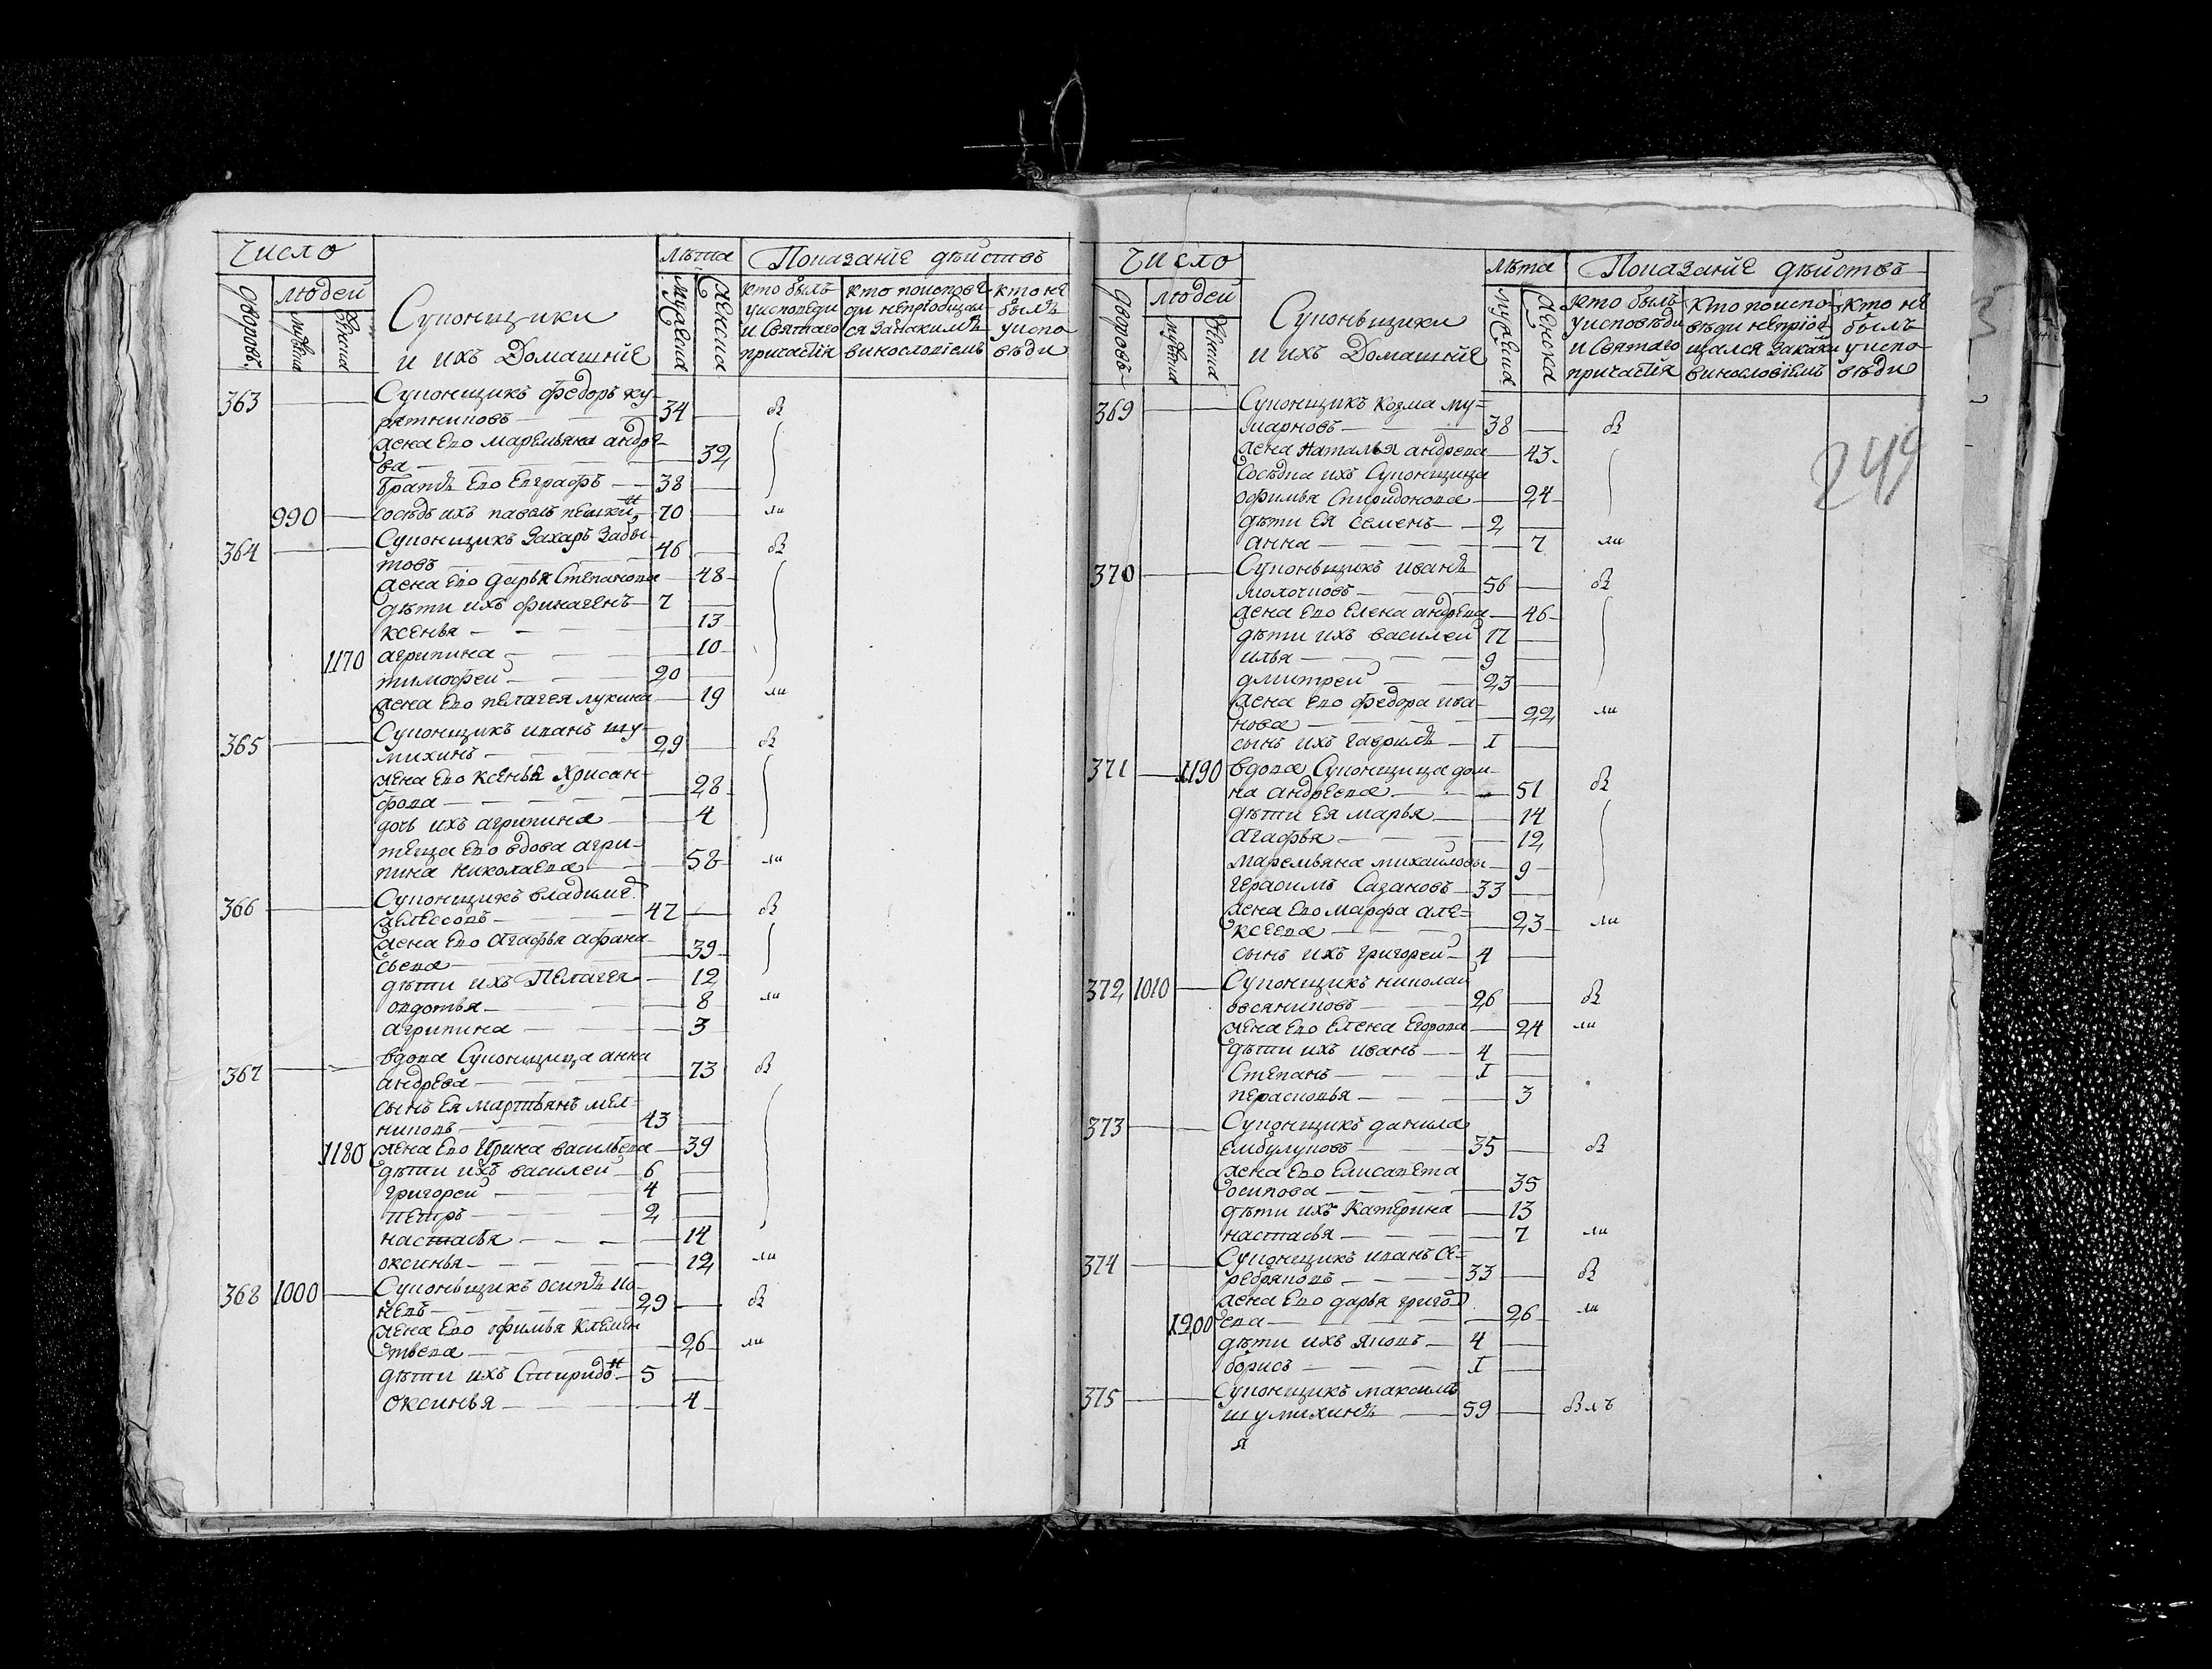 Число
Лѣта Показанїе дѣйствъ
людей
дворовъ
мужеска
женска
Суконщики
и ихъ Домашнїе
мужеска
женска
кто былъ
у исповеди
и Святаго
причастїя
кто по испове
ди непрїобщал
ся за какимъ
винословїемъ
кто не
былъ
у испо
вѣди
363 Суконщикъ Федоръ ку
рятниковъ 34
жена Его Маремьяна андре
ва 32
братъ Его Евграфъ 38
990 сосѣдъ ихъ павелъ 70
364 Суконщикъ Захаръ Забы
товъ 46
жена Его дарья Степанова 48
дѣти ихъ финагенъ 7
ксенья 13
1170 агрипина 10
тимофей 20
жена Его пелагея лукина 19
365 Суконщикъ иванъ шу
михинъ 29
жена Его ксенья Хрисан
фова 28
дочь ихъ агрипина 4
теща Его вдова агри
пина николаева 58
366 Суконщикъ владиме
47
жена Его агафья афана
сьева 39
дѣти ихъ Пелагея 12
авдотья 8
агрипина 3
367 вдова Суконщица анна
андрева 73
сынъ Ея мартьянъ мел
никовъ 43
1180 жена Его Ирина васильева 39
дѣти ихъ василей 6
григорей 4
петръ 2
настасья 14
оксинья 12
368 1000 Суконьщикъ осипъ
29
жена Его офимья Клемен
тьева 26
дѣти ихъ Спиридон 5
оксинья 4
Число
Лѣта Показанїе дѣйствъ
людей
дворовъ
мужеска
женска
Суконьщики
и ихъ Домашнїе
мужеска
женска
кто былъ
у исповѣди
и Святаго
причастїя
кто по испо
вѣди непрїоб
щался за каки
винословїемъ
кто не
былъ
у испо
вѣди
249
369 Суконщикъ козма му=
марновъ 38
жена наталья андрева 43
сосѣдка ихъ Суконщица
офимья Спиридонова 24
дѣти Ея Семенъ 2
анна 7
370 Суконьщикъ иванъ
молочковъ 56
жена Его Елена андрева 46
дѣти ихъ василей 17
илья 9
дмитрей 23
жена Его федора ива
нова 22
сынъ ихъ гаврилъ 1
371 1190 вдова Суконщица дом
на андреева 51
дѣти Ея марья 14
агафья 12
маремьяна михайловы 9
герасимъ Сазановъ 33
жена Его марфа але=
ксеева 23
сынъ ихъ григорей 4
372 1010 Суконщикъ николай
овсяниковъ 26
жена Его Елена Егорова 24
дѣти ихъ иванъ 4
Степанъ 1
перасковья 3
373 Суконщикъ данила
ембулуковъ 35
жена Его Елисавета
осипова 35
дѣти ихъ Катерина 13
настасья 7
374 Суконщикъ иванъ Се=
ребряковъ 33
жена Его дарья григор
1200 ева 26
дѣти ихъ яковъ 4
борисъ 1
375 Суконщикъ максимъ
шумихинъ 59